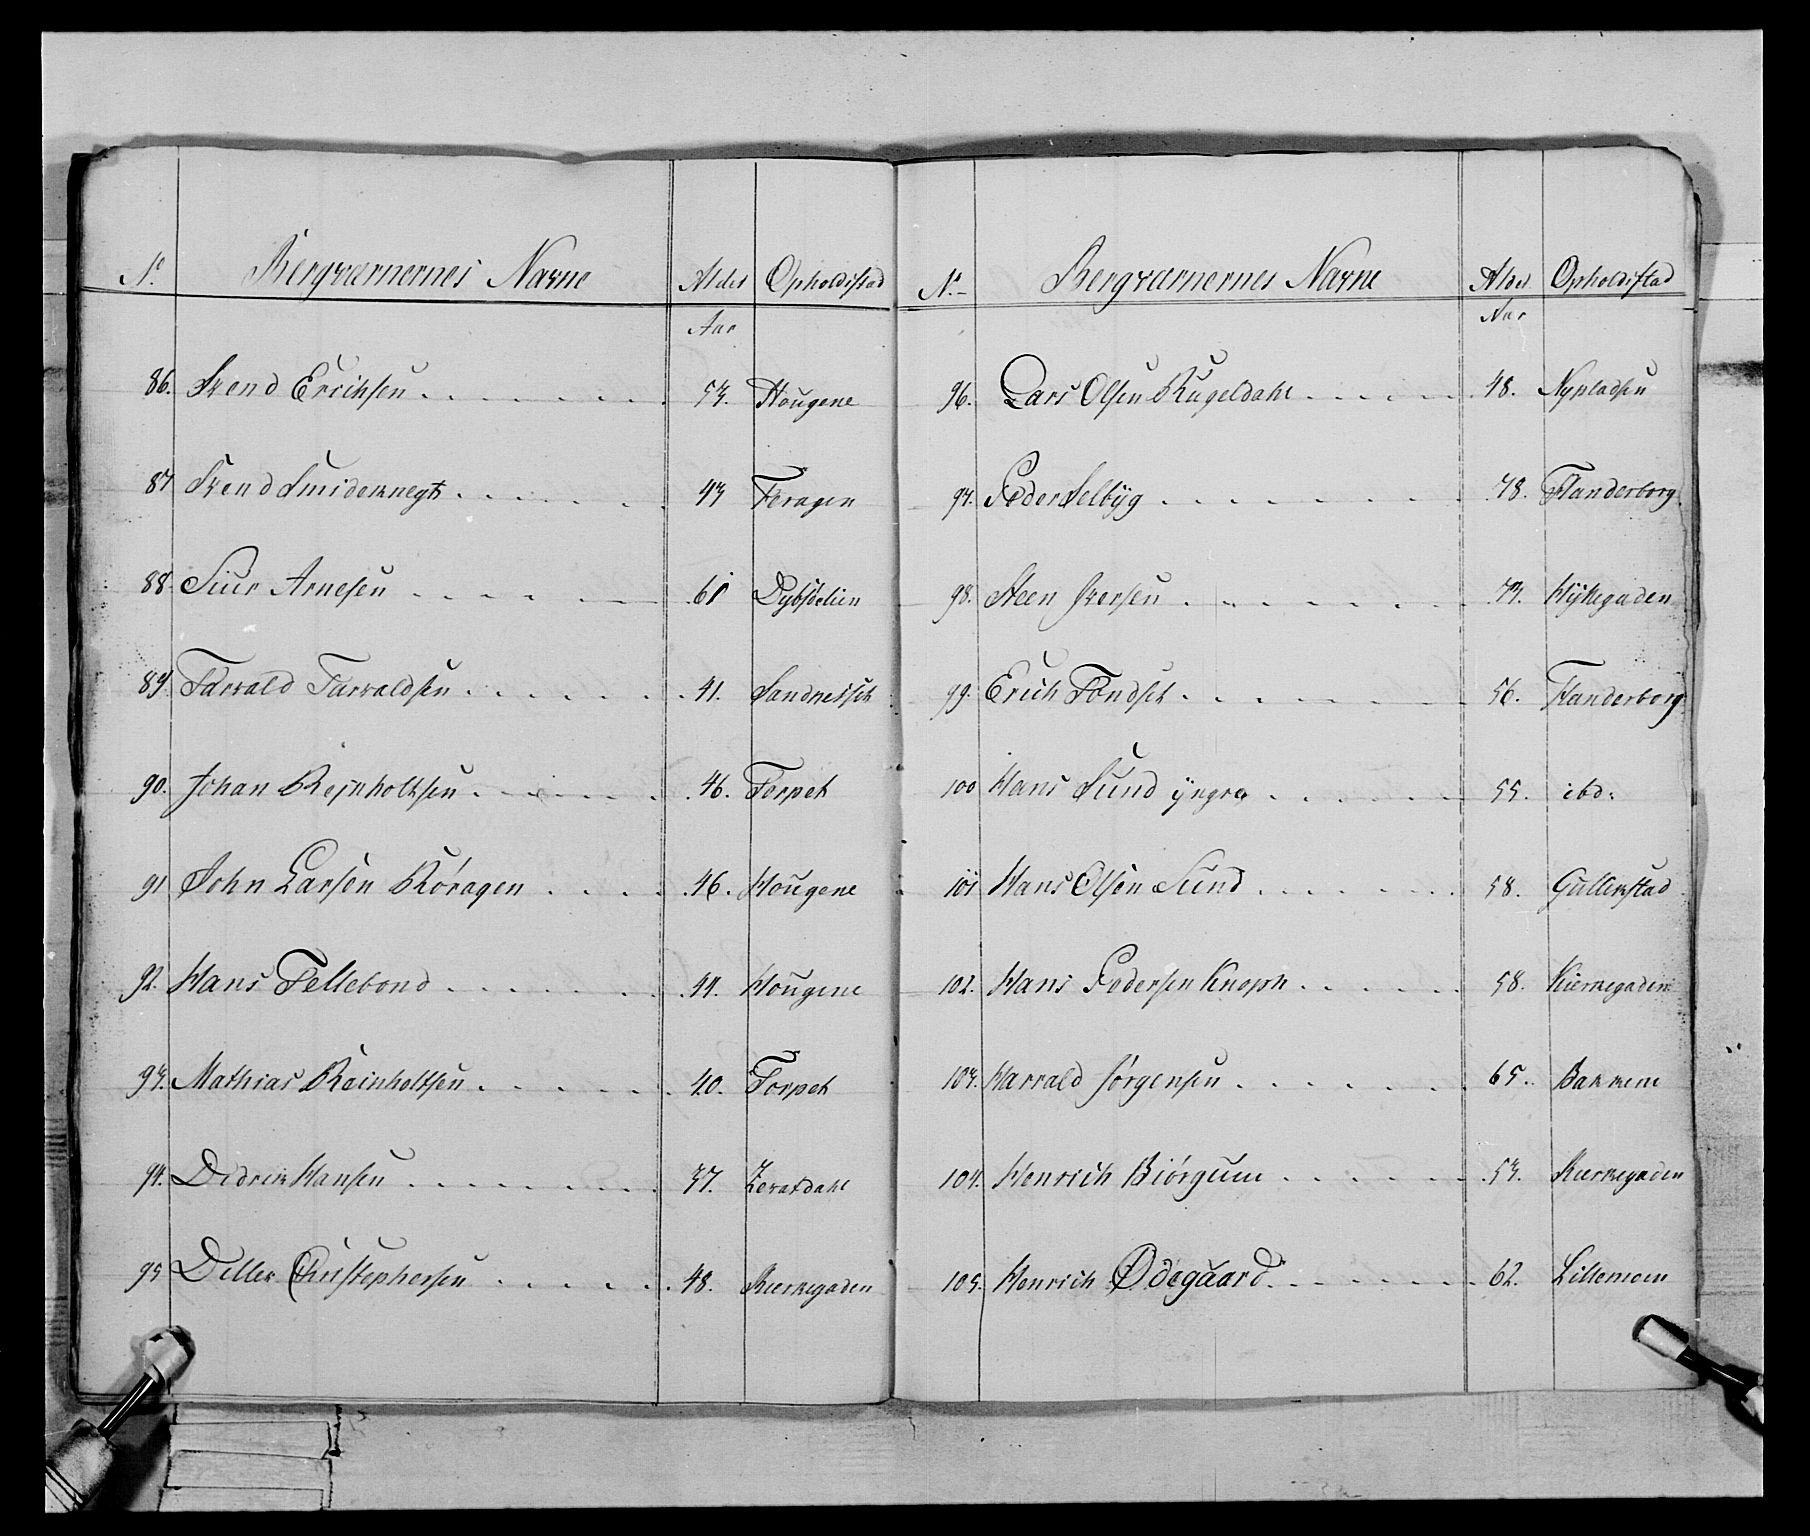 No. Bergværnernes Navne Alder Opholdsstad
Aar
86. Svend Erichsen 53. Hougene
87 Svend Smideknegt 43 Feragen
88. Siur Arnesen 61 Dybsøelien
89. Tarvald Tarvaldsen 41. Sandnesset
90. Johan Rejnholtsen 46. Torpet
91 John Larsen Røragen 46. Hougene
92. Hans Tellebond 44. Hougene
93. Mathias Reinholtsen 40. Torpet
94. Didrik Hansen 37. 
95 Detlev Christophersen 48. Kierkegaden
No. Bergværnernes Navne Alder Opholdsstad
Aar
96. Lars Olsen Kugeldahl 48. Nypladsen
97. Peder Selbÿg 48. Flanderborg
98. Steen Iversen 43. Hÿttegaden
99. Erich Tøndset 56. Flanderborg
100 Hans Sund ÿngre 55. ibd:
101 Hans Olsen Sund 58. Gullikstad
102. Hans Pedersen Knoph 58. Kierkegaden
103. Harrald Jørgensen 65. Bakkene
104. Henrich Biørgum 53. Kierkegaden
105. Henrich Ødegaard 62. Lillemoen